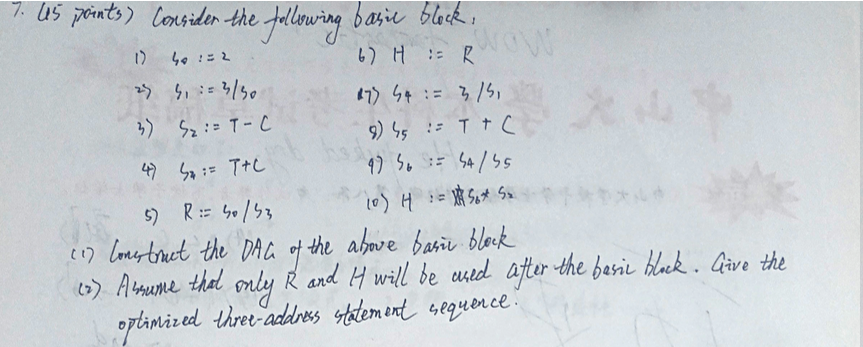 7. (15 points) Consider the following basic block:
1) S0 := 2
2) S1 := 3/S0
3) S2 := T - C
4) S3 := T + C
5) R := S0/S3
6) H := R
7) S4 := 3/S1
8) S5 := T + C
9) S6 := S4/S5
10) H := S6 * S2
(1) Construct the DAG of the above basic block
(2) Assume that only R and H will be used after the basic block. Give the
optimized three-address statement sequence.